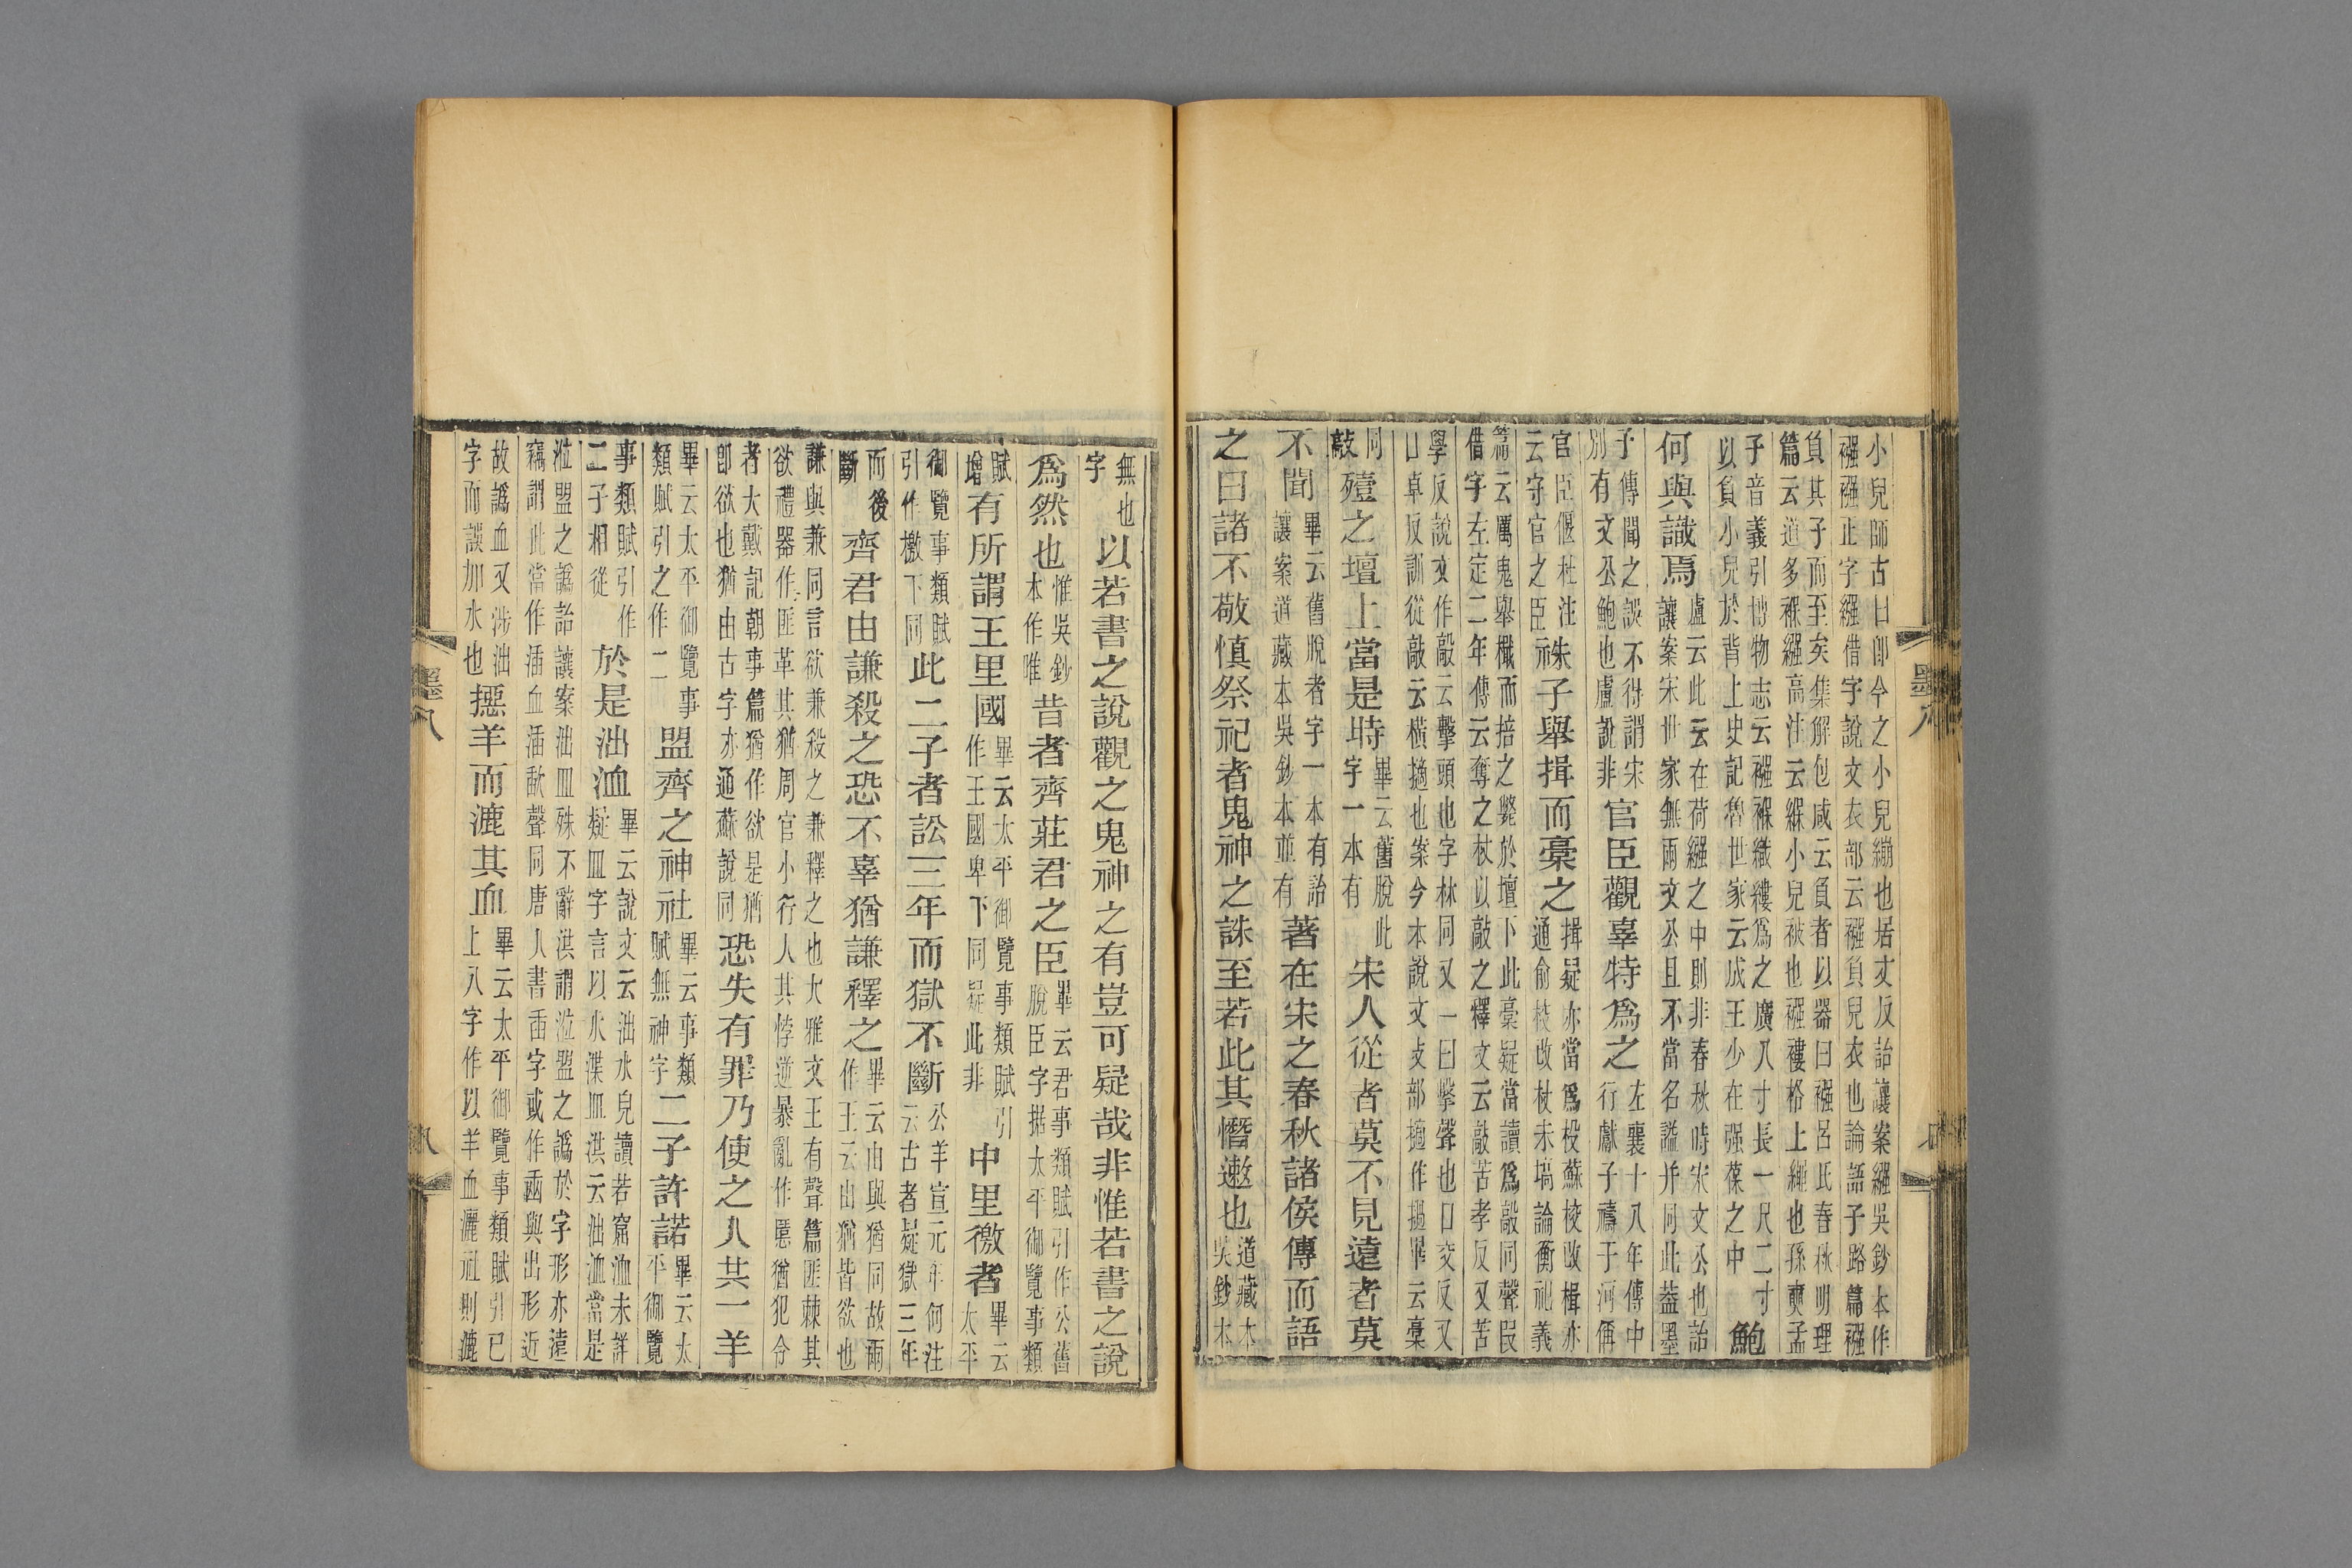 墨八
小兒師古曰即今之小兒繃也居丈反詒讓案繦吳鈔本作
襁襁正字繦借字說文衣部云襁負兒衣也論語子路篇襁
負其子而至矣集解包咸云負者以器曰襁呂氏春秋明理
篇云道多褓繦高注云褓小兒被也襁褸格上繩也孫奭孟
子音義引博物志云襁褓織縷爲之廣八寸長一尺二寸
以負小兒於背上史記魯世家云成王少在强葆之中 鮑
何與識焉 盧云此云在荷繦之中則非春秋時宋文公也詒 讓案宋世家無兩文公且不當名謚并同此葢墨
子傳聞之誤不得謂宋 別有文公鮑也盧說非 官臣觀辜特爲之 左襄十八年傳中 行獻子禱于河偁
官臣偃杜注 云守官之臣 祩子舉揖而槀之 揖疑亦當爲杸蘇校改楫亦 通俞校改杖未塙論衡祀義
篇云厲鬼舉檝而掊之斃於壇下此槀疑當讀爲敲同聲叚
借字左定二年傳云奪之杖以敲之釋文云敲苦孝反又苦
學反說文作毃云擊頭也字林同又一曰擊聲也口交反又
口卓反訓從敲云橫擿也案今本說文攴部擿作撾畢云槀
同 敲 殪之壇上當是時 畢云舊脫此 字一本有 宋人從者莫不見遠者莫
不聞 畢云舊脫者字一本有詒 讓案道藏本吳鈔本並有 著在宋之春秋諸侯傳而語
之曰諸不敬慎祭祀者鬼神之誅至若此其憯遬也 道藏本 吳鈔本
無也 字 以若書之說觀之鬼神之有豈可疑哉非惟若書之說
爲然也 惟吳鈔 本作唯 昔者齊莊君之臣 畢云君事類賦引作公舊 脫臣字据太平御覽事類
賦 增 有所謂王里國 畢云太平御覽事類賦引 作王國卑下同疑此非 中里徼者 畢云 太平
御覽事類賦 引作檄下同 此二子者訟三年而獄不斷 公羊宣元年何注 云古者疑獄三年
而後 斷 齊君由謙殺之恐不辜猶謙釋之 畢云由與猶同故兩 作王云由猶皆欲也
謙與兼同言欲兼殺之兼釋之也大雅文王有聲篇匪棘其
欲禮器作匪革其猶周官小行人其悖逆暴亂作慝猶犯令
者大戴記朝事篇猶作欲是猶 即欲也猶由古字亦通蘇說同 恐失有罪乃使之人共一羊
畢云太平御覽事 類賦引之作二 盟齊之神社 畢云事類 賦無神字 二子許諾 畢云太 平御覽
事類賦引作 二子相從 於是泏洫 畢云說文云泏水皃讀若窋洫未詳 疑皿字言以水渫皿洪云泏洫當是
涖盟之譌詒讓案泏皿殊不辭洪謂涖盟之譌於字形亦遠
竊謂此當作㴃血㴃歃聲同唐人書臿字或作與出形近
故譌血又涉泏 字而誤加水也 㨢羊而漉其血 畢云太平御覽事類賦引已 上八字作以羊血灑社則漉
墨八